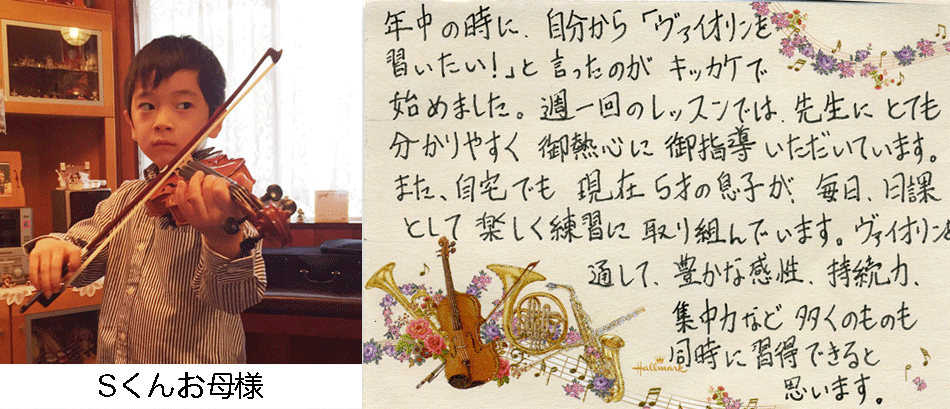 年中の時に、自分から「ヴァイオリンを
習いたい!」と言ったのがキッカケで
始めました。週一回のレッスンでは、先生にとても
分かりやすく御熱心に御指導いただいています。
また、自宅でも現在5才の息子が、毎日、日課
として楽しく練習に取り組んでいます。ヴァイオリンを
通して、豊かな感性、持続力、
集中力など多くのものも
同時に習得できると
思います。
Hallmark
Sくんお母様